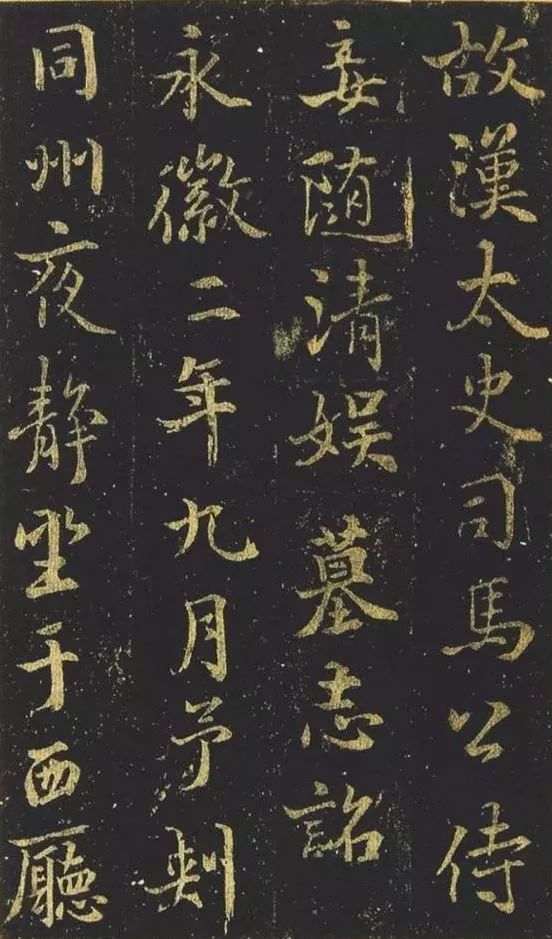 故漢太史司馬公侍
妾随清娱墓志詺
永徽二年九月予刺
同州夜静坐于西廳